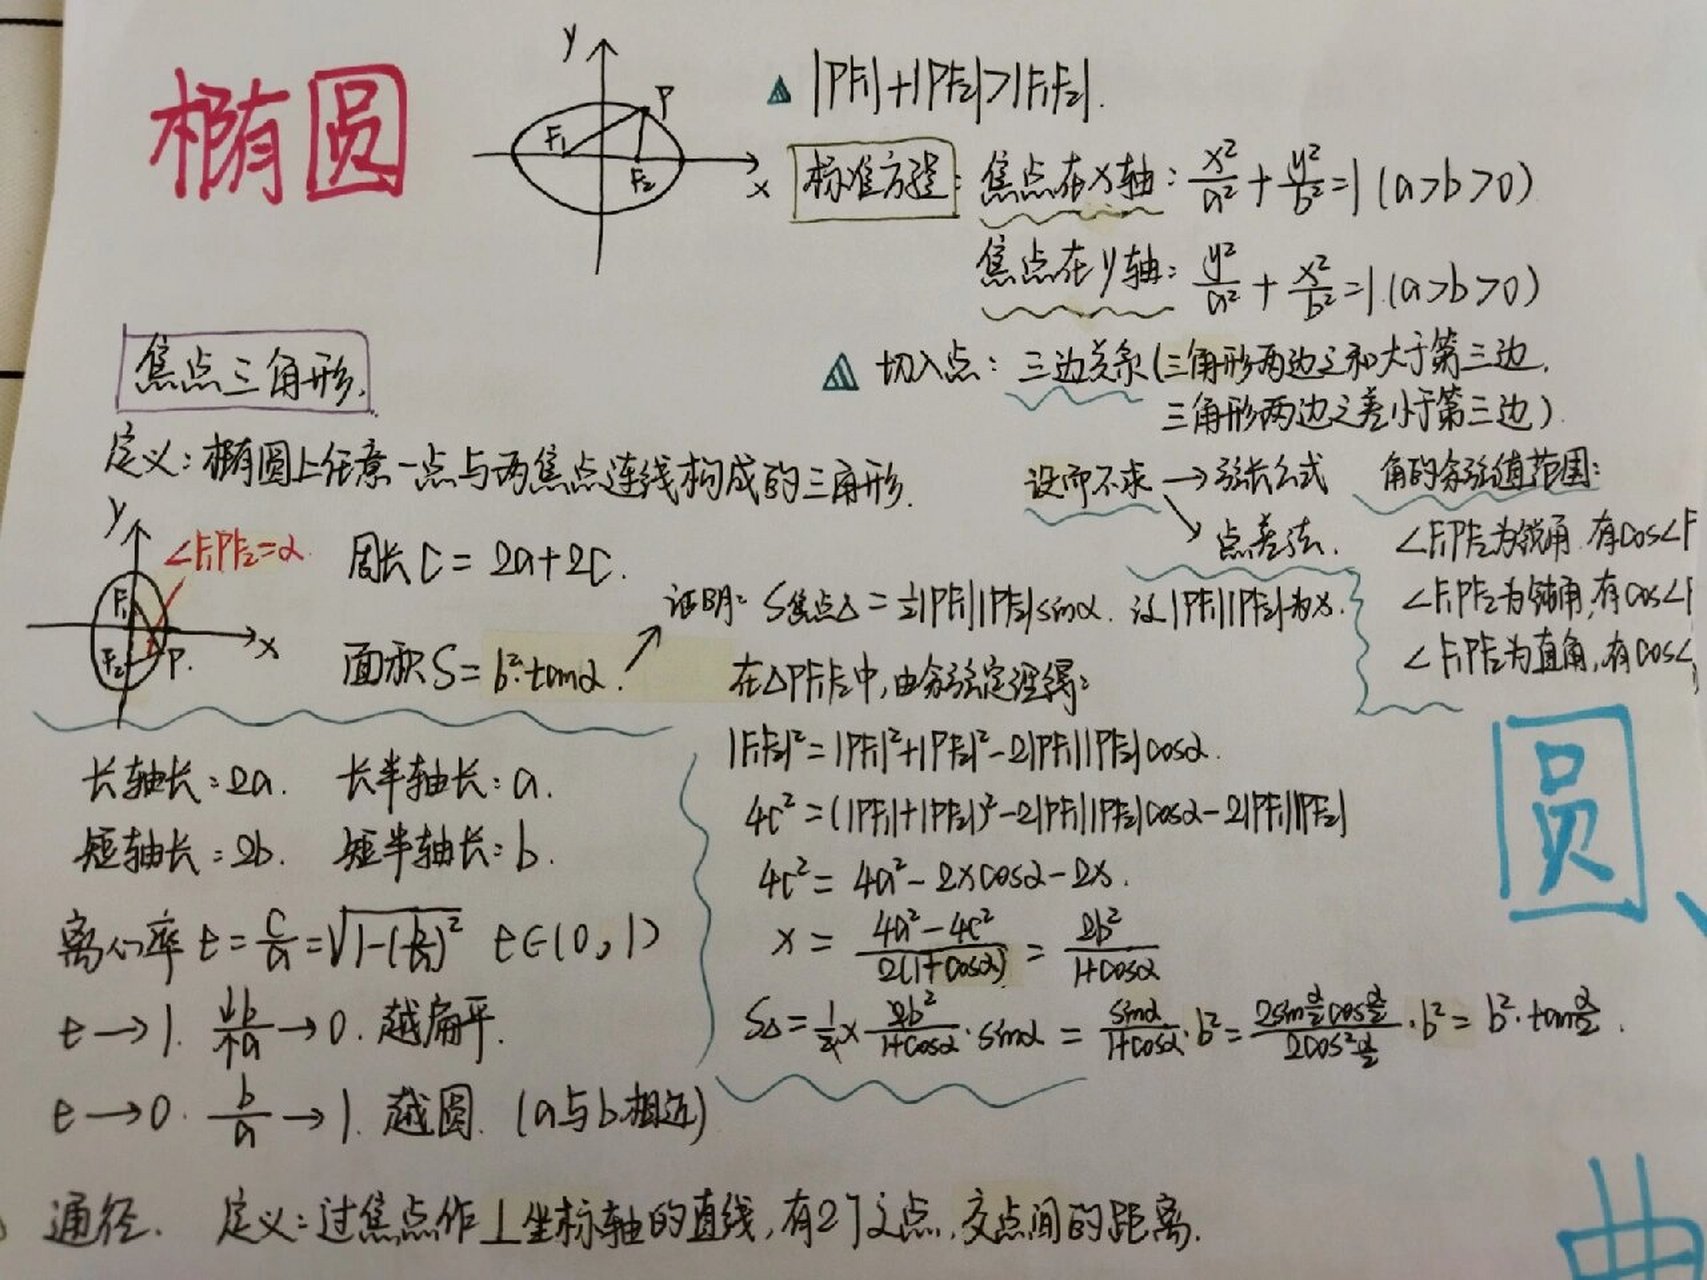 椭圆
y
P
F₁
F₂
x
|PF₁|+|PF₂|>|F₁F₂|.
标准方程: 焦点在x轴: x²/a² + y²/b² =1 (a>b>0)
焦点在y轴: y²/a² + x²/b² =1 (a>b>0)
切入点: 三边关系(三角形两边之和大于第三边.
三角形两边之差小于第三边)
焦点三角形.
定义:椭圆上任意一点与两焦点连线构成的三角形.
设而不求 → 弦长公式
↘ 点差法.
角的余弦值范围:
∠F₁PF₂为锐角.有cos∠F
∠F₁PF₂为钝角,有cos∠F
∠F₁PF₂为直角,有cos∠
y
∠F₁PF₂=α
F₁
F₂
P.
x
周长C = 2a+2c.
面积S= b²·tanα. ↗
证明: S焦点△ = ½|PF₁||PF₂|sinα. 设|PF₁||PF₂|为x.
在△PF₁F₂中,由余弦定理得:
|F₁F₂|²=|PF₁|²+|PF₂|²-2|PF₁||PF₂|cosα.
4c²=(|PF₁|+|PF₂|)²-2|PF₁||PF₂|cosα-2|PF₁||PF₂|
4c²= 4a²-2xcosα-2x.
x = (4a²-4c²)/(2(1+cosα)) = 2b²/(1+cosα)
S△= ½× 2b²/(1+cosα) ·sinα = sinα/(1+cosα) ·b²= (2sin(α/2)cos(α/2))/(2cos²(α/2)) ·b²= b²·tan(α/2).
长轴长:2a. 长半轴长:a.
短轴长:2b. 短半轴长:b.
离心率e= c/a =√(1-(b/a)²) e∈(0,1)
e→1. ↓b/↑a →0. 越扁平.
e→0. b/a →1. 越圆. (a与b相近)
通径. 定义:过焦点作⊥坐标轴的直线,有2个交点.交点间的距离.
圆